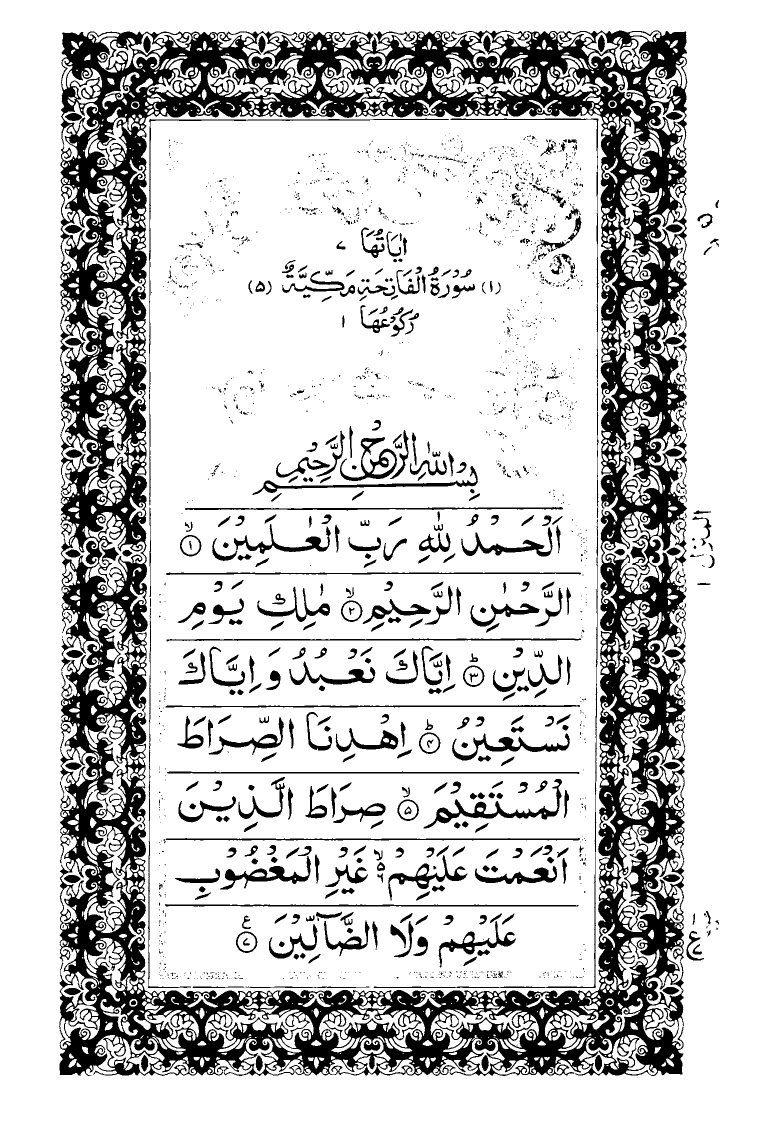 اٰيَاتُهَا ٧
(١) سُوْرَةُ الْفَاتِحَةِ مَكِّيَّةٌ (٥)
رُكُوْعُهَا ١
بِسْمِ اللّٰهِ الرَّحْمٰنِ الرَّحِيْمِ
اَلْحَمْدُ لِلّٰهِ رَبِّ الْعٰلَمِيْنَ ۙ﴿۱﴾
الرَّحْمٰنِ الرَّحِيْمِ ۙ﴿۲﴾ مٰلِكِ يَوْمِ
الدِّيْنِ ؕ﴿۳﴾ اِيَّاكَ نَعْبُدُ وَ اِيَّاكَ
نَسْتَعِيْنُ ؕ﴿۴﴾ اِهْدِنَا الصِّرَاطَ
الْمُسْتَقِيْمَ ۙ﴿۵﴾ صِرَاطَ الَّذِيْنَ
اَنْعَمْتَ عَلَيْهِمْ ۙ۬۶ غَيْرِ الْمَغْضُوْبِ
عَلَيْهِمْ وَلَا الضَّآلِّيْنَ ﴿۷﴾ ع
المنزل ١
ع